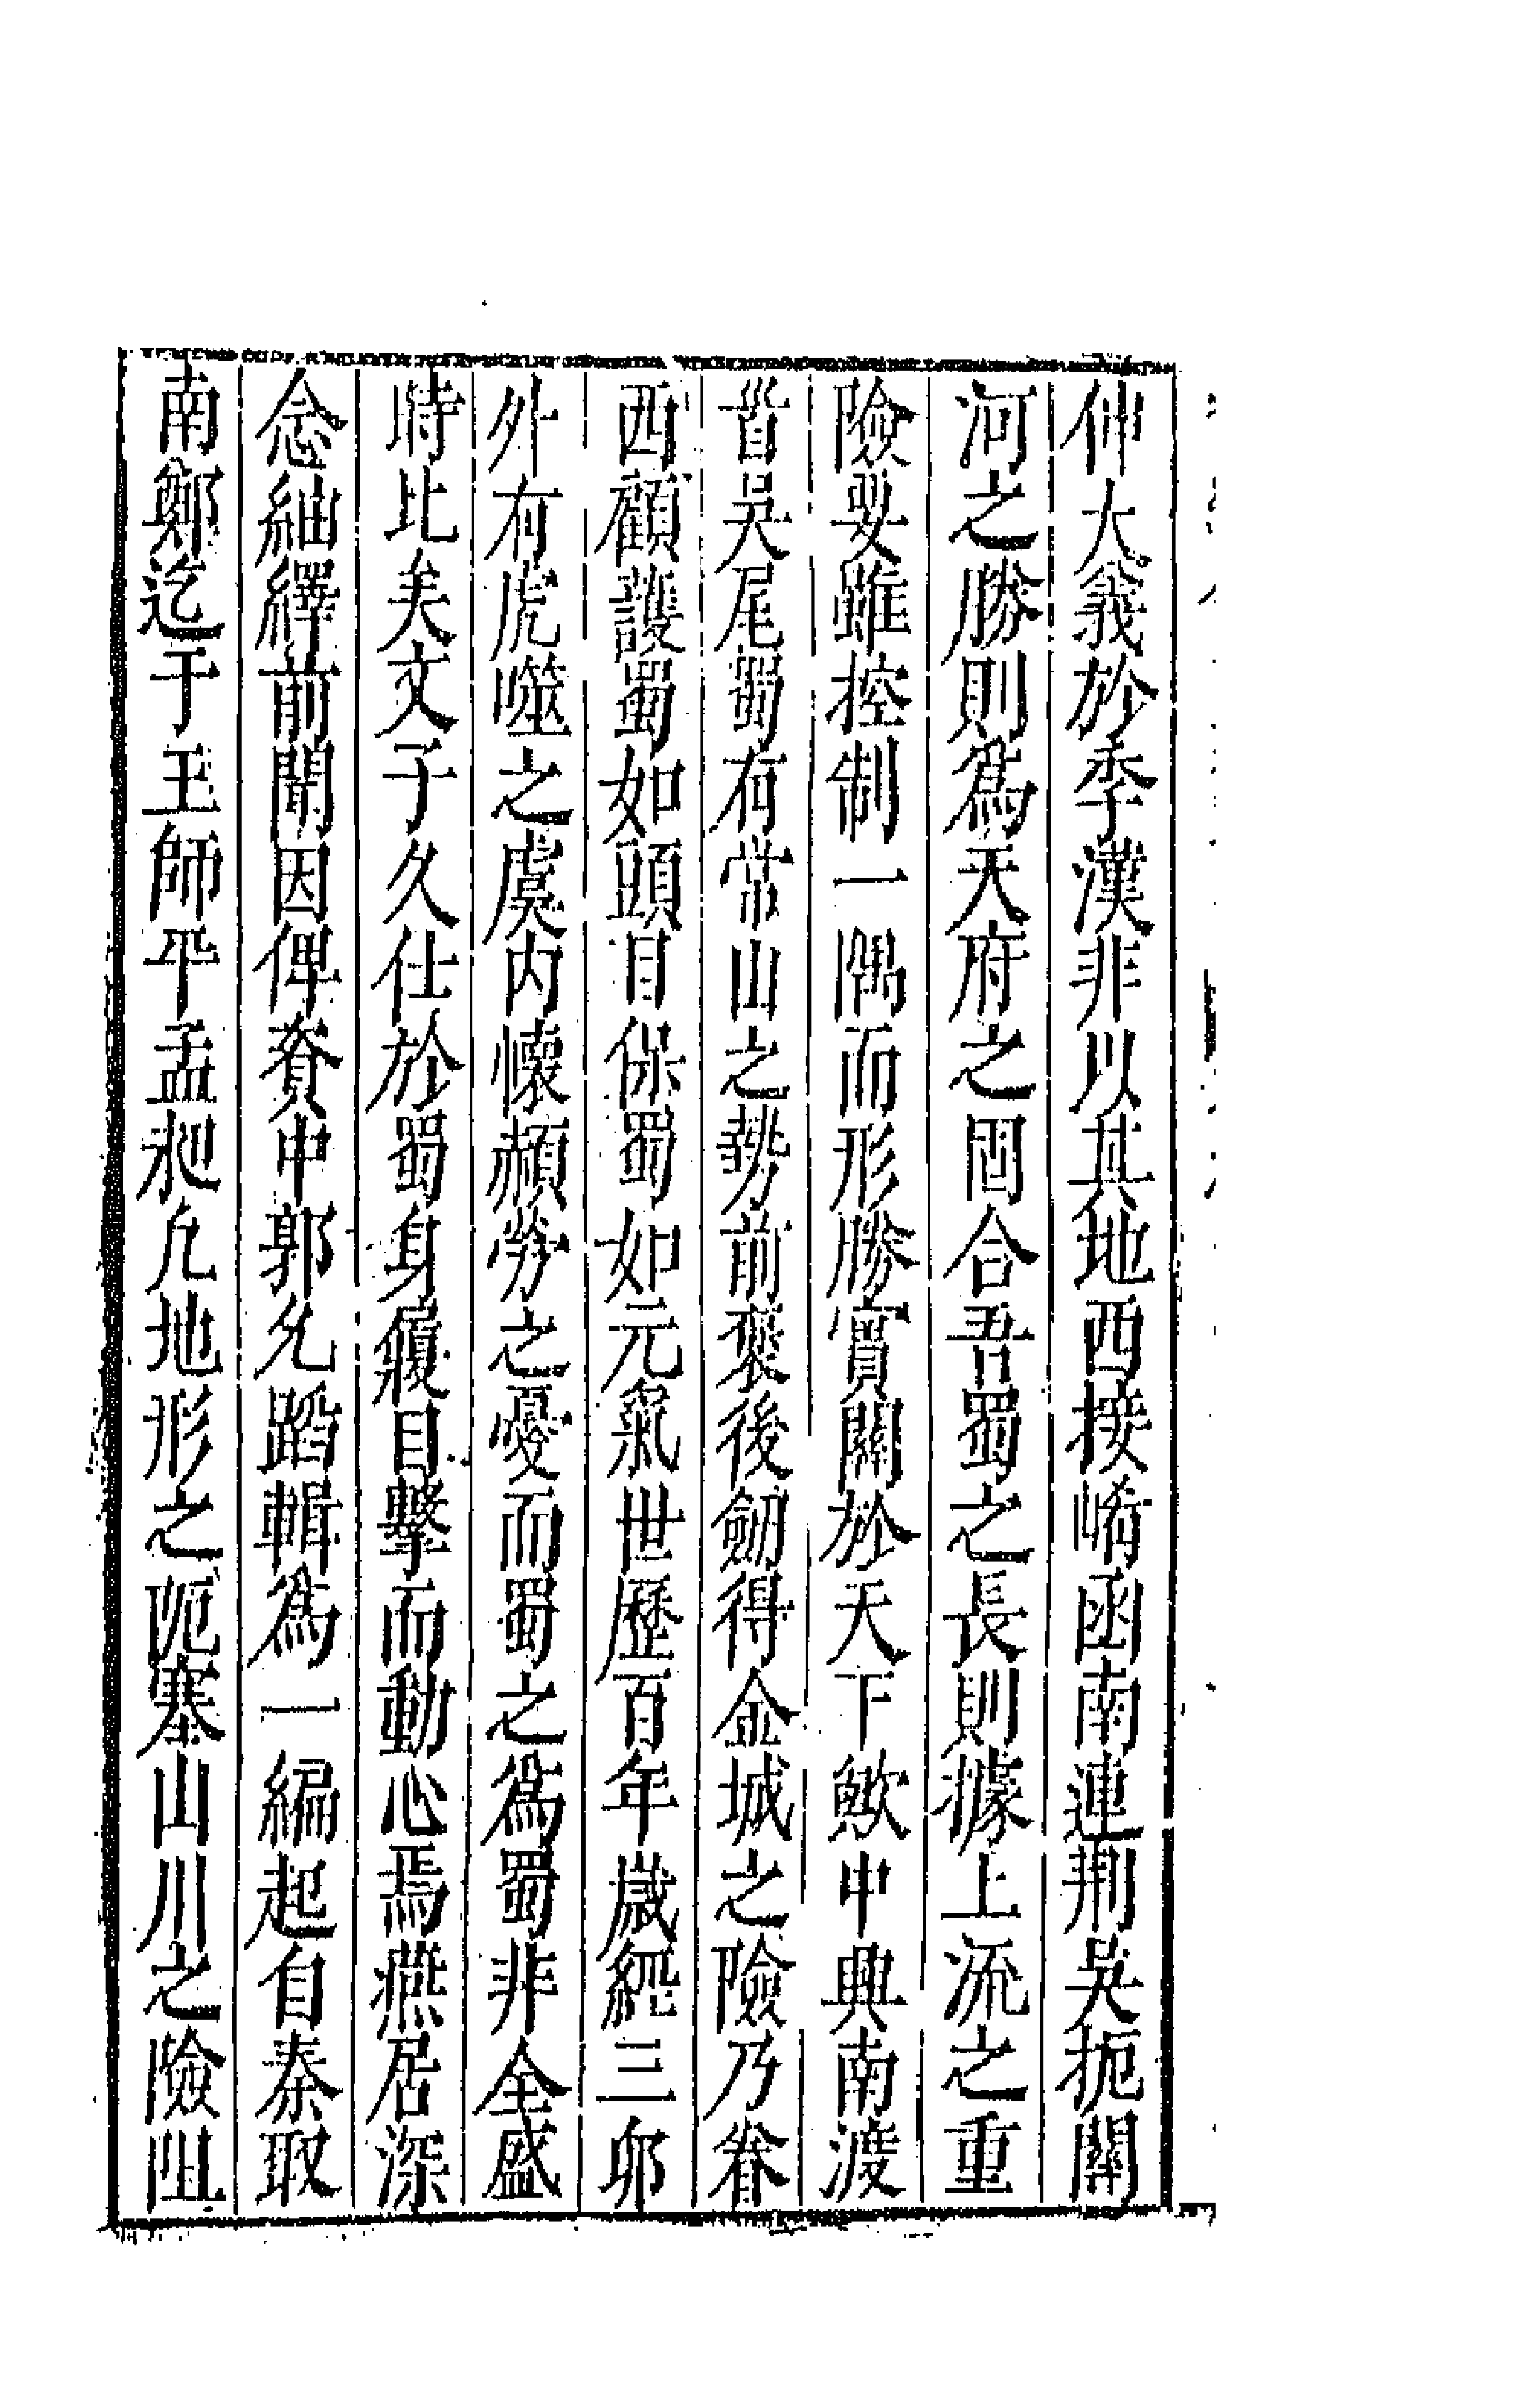 伸大義於季漢非以其地西接崤函南連荆吳扼關
河之勝則爲天府之固合吾蜀之長則據上流之重
險要雖控制一隅而形勝實關於天下歟中興南渡
首吳尾蜀有常山之勢前褒後劒得金城之險乃眷
西顧護蜀如頭目保蜀如元氣世歷百年歲經三卯
外有虎噬之虞内懷頳勞之憂而蜀之爲蜀非全盛
時比矣文子久仕於蜀身履目擊而動心焉燕居深
念紬繹前聞因俾資中郭允蹈輯爲一編起自秦取
南鄭迄于王師平孟昶凢地形之阨塞山川之險阻